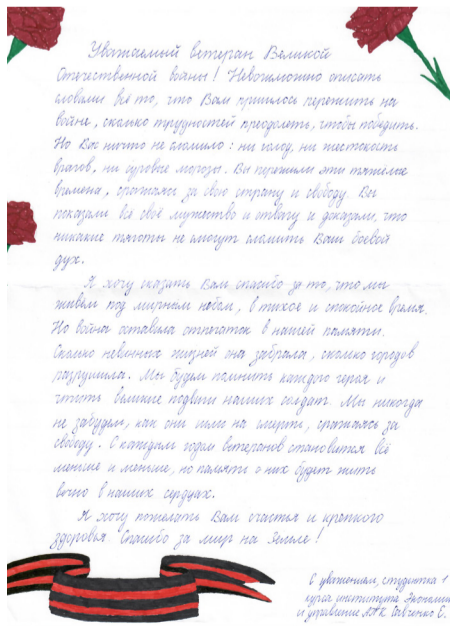 Уважаемый ветеран Великой
Отечественной войны! Невозможно описать
словами всё то, что Вам пришлось пережить на
войне, сколько трудностей преодолеть, чтобы победить.
Но Вас ничто не сломило: ни голод, ни жестокость
врагов, ни суровые морозы. Вы пережили эти тяжёлые
времена, сражаясь за свою страну и свободу. Вы
показали всё своё мужество и отвагу и доказали, что
никакие тяготы не смогут сломить Ваш боевой
дух.
Я хочу сказать Вам спасибо за то, что мы
живём под мирным небом, в тихое и спокойное время.
Но война оставила отпечаток в нашей памяти.
Сколько невинных жизней она забрала, сколько городов
разрушила. Мы будем помнить каждого героя и
чтить великие подвиги наших солдат. Мы никогда
не забудем, как они шли на смерть, сражаясь за
свободу. С каждым годом ветеранов становится всё
меньше и меньше, но память о них будет жить
вечно в наших сердцах.
Я хочу пожелать Вам счастья и крепкого
здоровья. Спасибо за мир на Земле!
С уважением, студентка 1
курса института Экономики
и управления АПК Савченко Е.